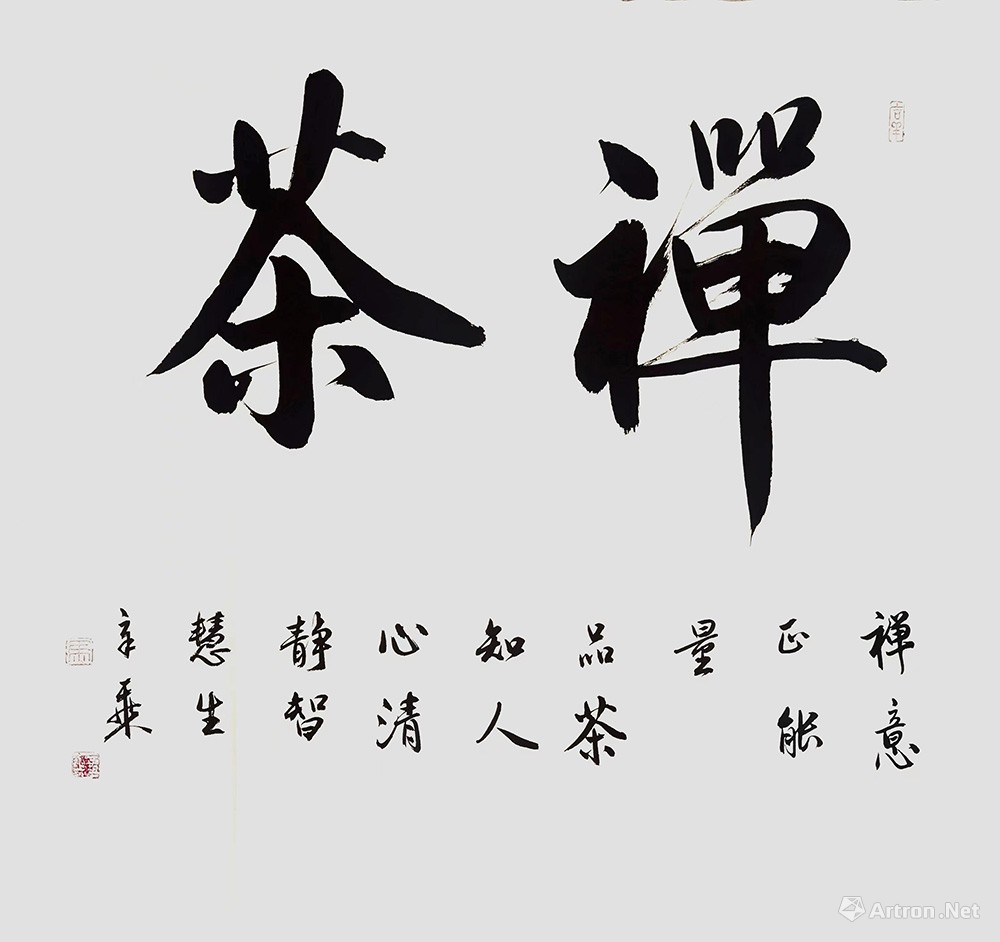 禪茶
禪意
正能
量
品茶
知人
心清
静智
慧生
辛
Artron.Net